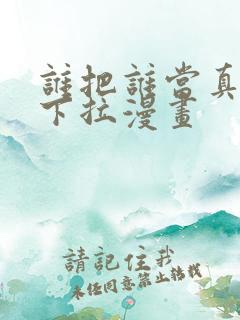 誰把誰當真
下拉漫畫
請記住我
未经同意禁止转载